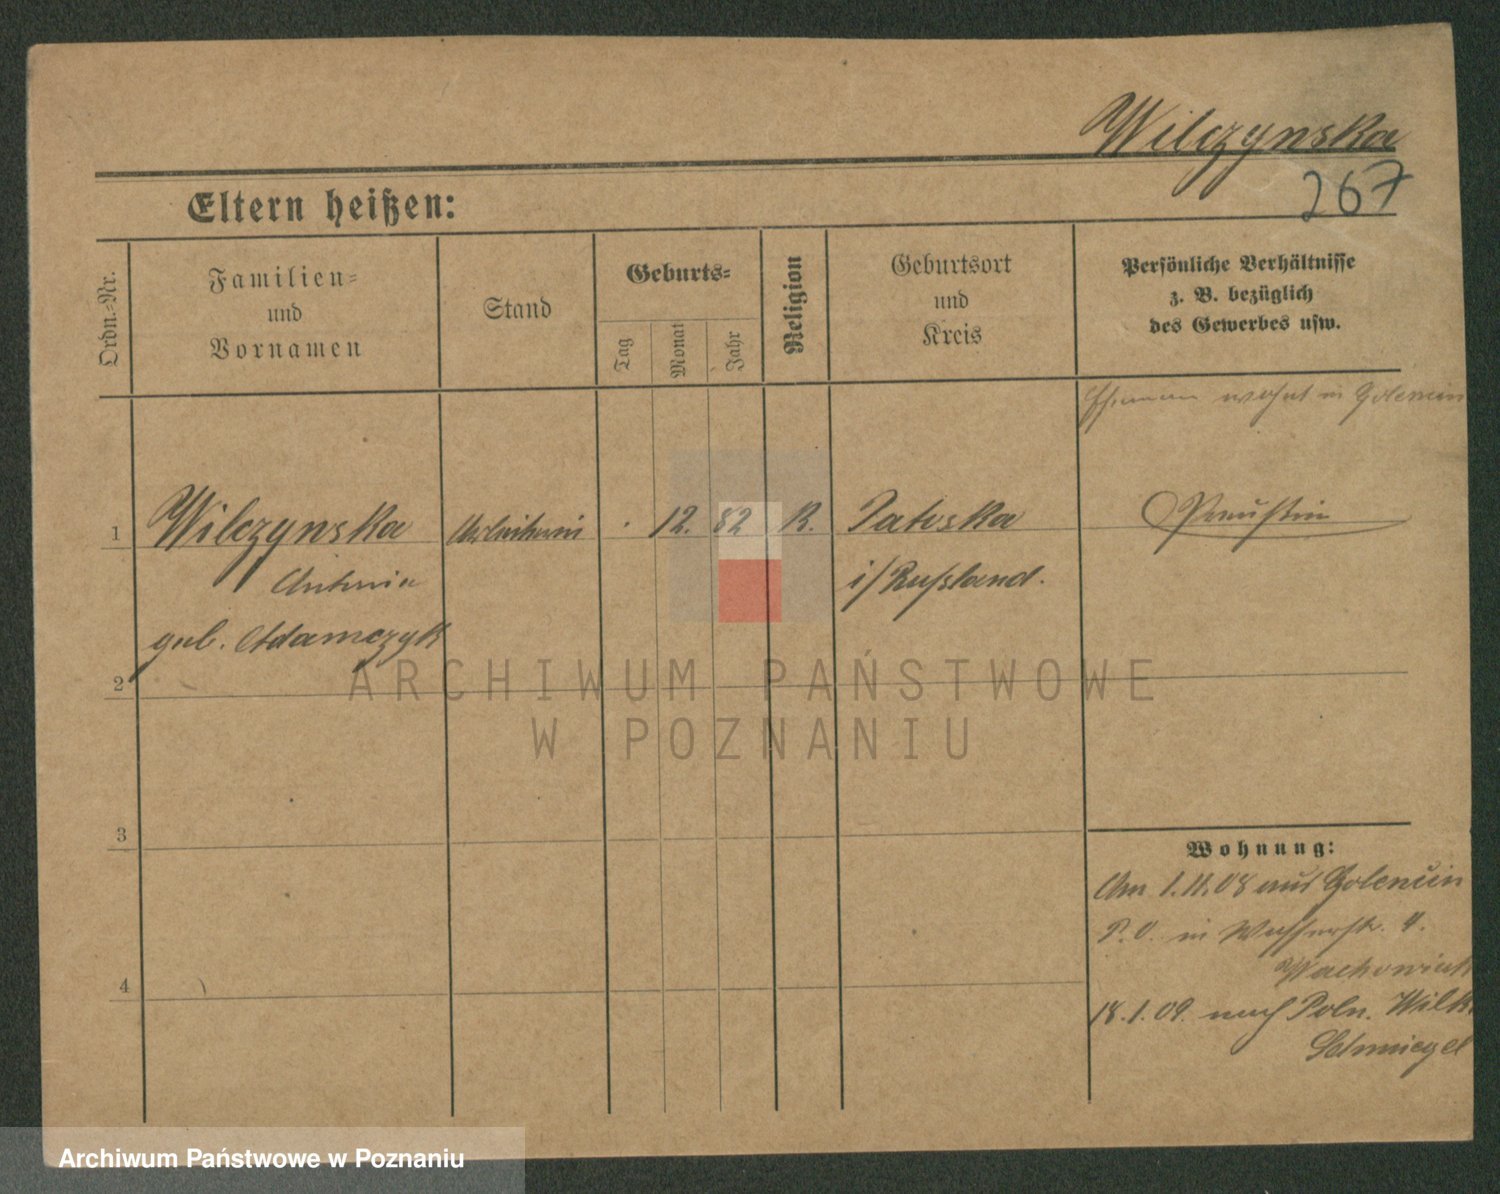 Wilczynska
267
Eltern heißen:
Ordn.-Nr.
Familien-
und
Vornamen
Stand
Geburts-
Tag
Monat
Jahr
Religion
Geburtsort
und
Kreis
Persönliche Verhältnisse
z. B. bezüglich
des Gewerbes usw.
Ehemann wohnt in Golencin
1
Wilczynska
Arbeiterin
12. 82
K.
Patoska
Preußin
Antonia
i/Rußland.
geb. Adamczyk
2
3
4
Wohnung:
Am 1.11.08 aus Golencin
P.O. in Wasserstr. 4.
Wachowiak
18.1.09. nach Poln. Wilk.
Schmiegel
ARCHIWUM PAŃSTWOWE
W POZNANIU
Archiwum Państwowe w Poznaniu